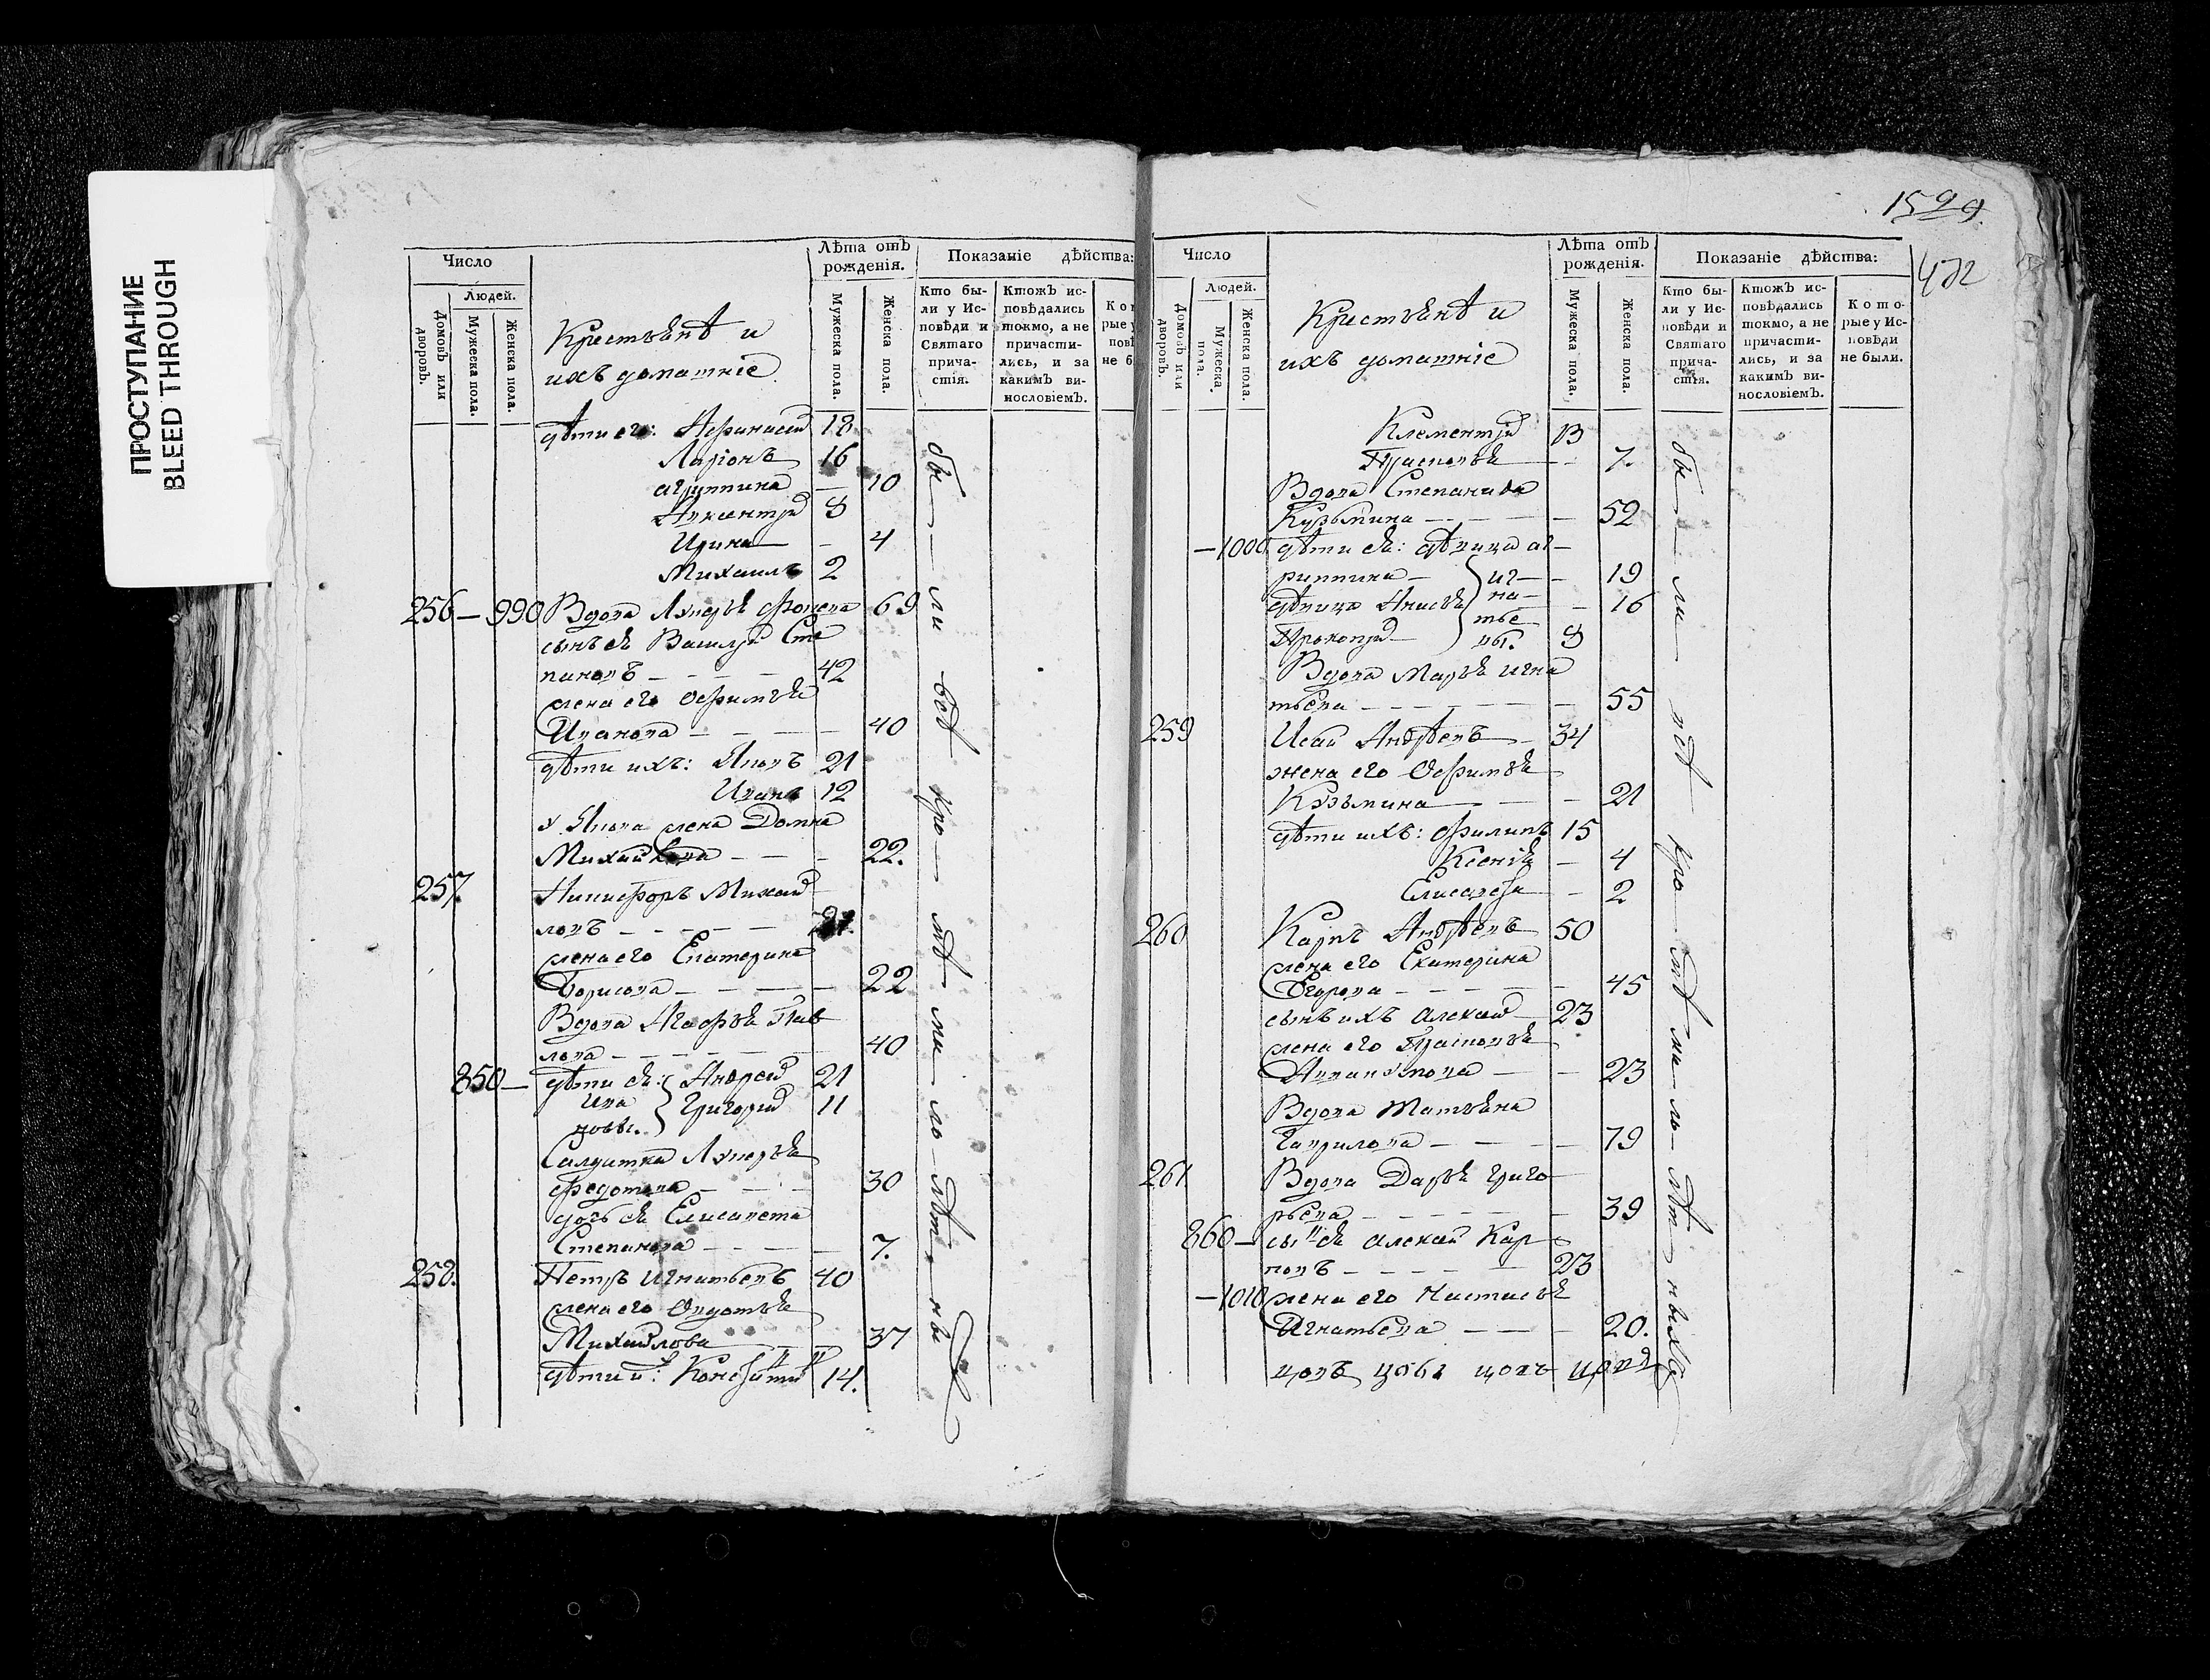 ПРОСТУПАНИЕ
BLEED THROUGH
Число
Людей.
Домовъ или дворовъ.
Мужеска пола.
Женска пола.
Крестьянѣ и
ихъ домашніе
Лѣта отъ рожденія.
Мужеска пола.
Женска пола.
Показаніе дѣйства:
Кто были у Исповѣди и Святаго причастія.
Ктожъ исповѣдались токмо, а не причастились, и за какимъ винословіемъ.
дѣти его: Афанасій 18
Ларіонъ 16
агрипина — 10
Авксентій 8
Ирина — 4
Михаилъ 2
256 — 990 Вдова Лукерья Фокева 69
сынъ ея Василій Сте
пановъ — 42
жена его Офимья
Иванова — 40
дѣти ихъ: Яковъ 21
Иванъ 12
у Якова жена Домна
Михайлова — 22.
257. Никифоръ Михай
ловъ —
жена его Екатерина
Борисова — 22
Вдова Агафья Пав
лова — 40
850 — дѣти ея: Андрей 21
Ива
новы. Григорій 11
Салдатка Лукерья
Федотова — 30
дочь ея Елисавета
Степанова — 7.
258. Петръ Игнатьевъ 40
жена его Овдотья
Михайлова — 37
14.
были всѣ кромѣ малолѣтныхъ
1599
Число
Людей.
Домовъ или дворовъ.
Мужеска пола.
Женска пола.
Крестьянѣ и
ихъ домашніе
Лѣта отъ рожденія.
Мужеска пола.
Женска пола.
Показаніе дѣйства:
Кто были у Исповѣди и Святаго причастія.
Ктожъ исповѣдались токмо, а не причастились, и за какимъ винословіемъ.
Которые у Исповѣди не были.
Клементій 13
Прасковья — 7.
Вдова Степанида
Кузьмина — 52
— 1000 дѣти ея: дѣвица аг
рипина — иг 19
дѣвица Анисья на 16
тье
Прокопій — вы. 8
Вдова Марья Игна
тьева — 55
259 Исай Андрѣевъ 34
жена его Офимья
Кузьмина — 21
дѣти ихъ: Филипъ 15
Ксенія — 4
Елисавета — 2
260 Карпъ Андрѣевъ 50
жена его Екатерина
Егорова — 45
сынъ ихъ Алексѣй 23
жена его Прасковья
— 23
Вдова Матвѣна
Гаврилова — 79
261 Вдова Дарья Григо
рьева — 39
860 — сынъ ея Алексѣй Кар
повъ — 23
— 1010 жена его Настасья
Игнатьева — 20.
были всѣ кромѣ малолѣтныхъ